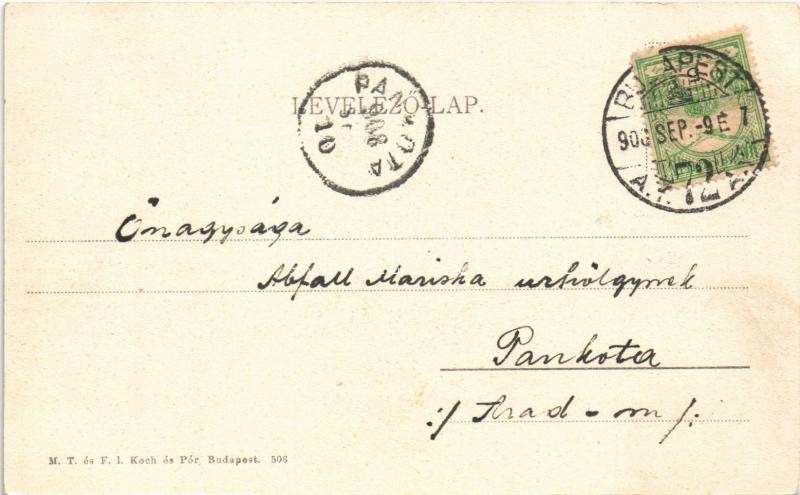 LEVELEZŐ-LAP.
PANKOTA
10
BUDAPEST
SEP.-9 E 7
72
Őnagysága
Abfall Mariska urhölgynek
Pankota
:/ Arad-m /:
M. T. és F. l. Koch és Pór, Budapest. 506